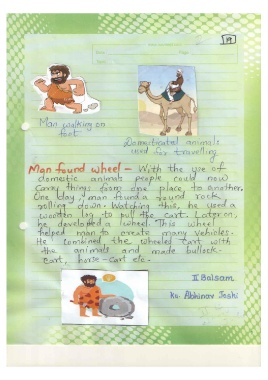 19
Man walking on
foot
Domesticated animals
used for travelling
Man found wheel - With the use of
domestic animals people could now
carry things from one place to another.
One day, man found a round rock
rolling down. Watching this, he used a
wooden log to pull the cart. Later on,
he developed a wheel. This wheel
helped man to create many vehicles.
He combined the wheeled cart with
the animals and made bullock-
cart, horse-cart etc.
II Balsam
Ku. Abhinav Joshi